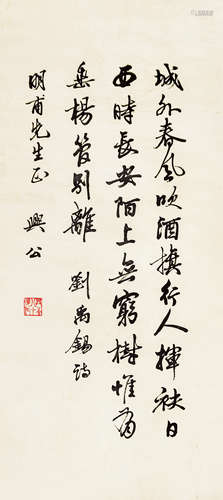 城外春風吹酒旗行人揮袂日
西時長安陌上無窮樹惟有
垂楊管別離 劉禹錫詩
明甫先生正 興公